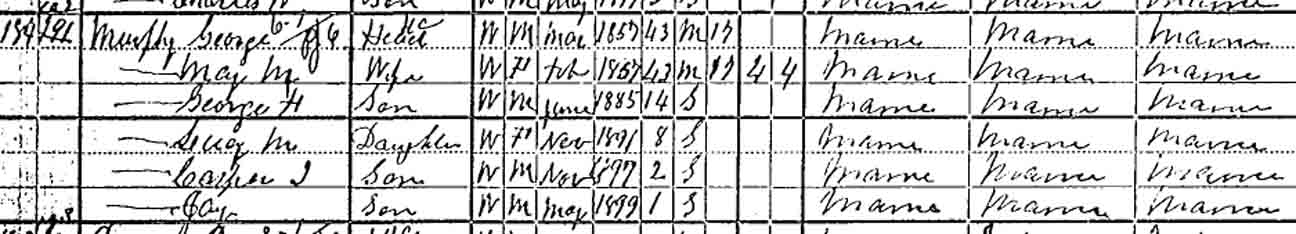 Murphy George Head W M Mar 1857 43 M 17 Maine Maine Maine
— May M Wife W F Feb 1857 43 M 17 4 4 Maine Maine Maine
— George H Son W M June 1885 14 S Maine Maine Maine
— M Daughter W F Nov 1891 8 S Maine Maine Maine
— Son W M Nov 1897 2 S Maine Maine Maine
— Son W M May 1899 1 S Maine Maine Maine